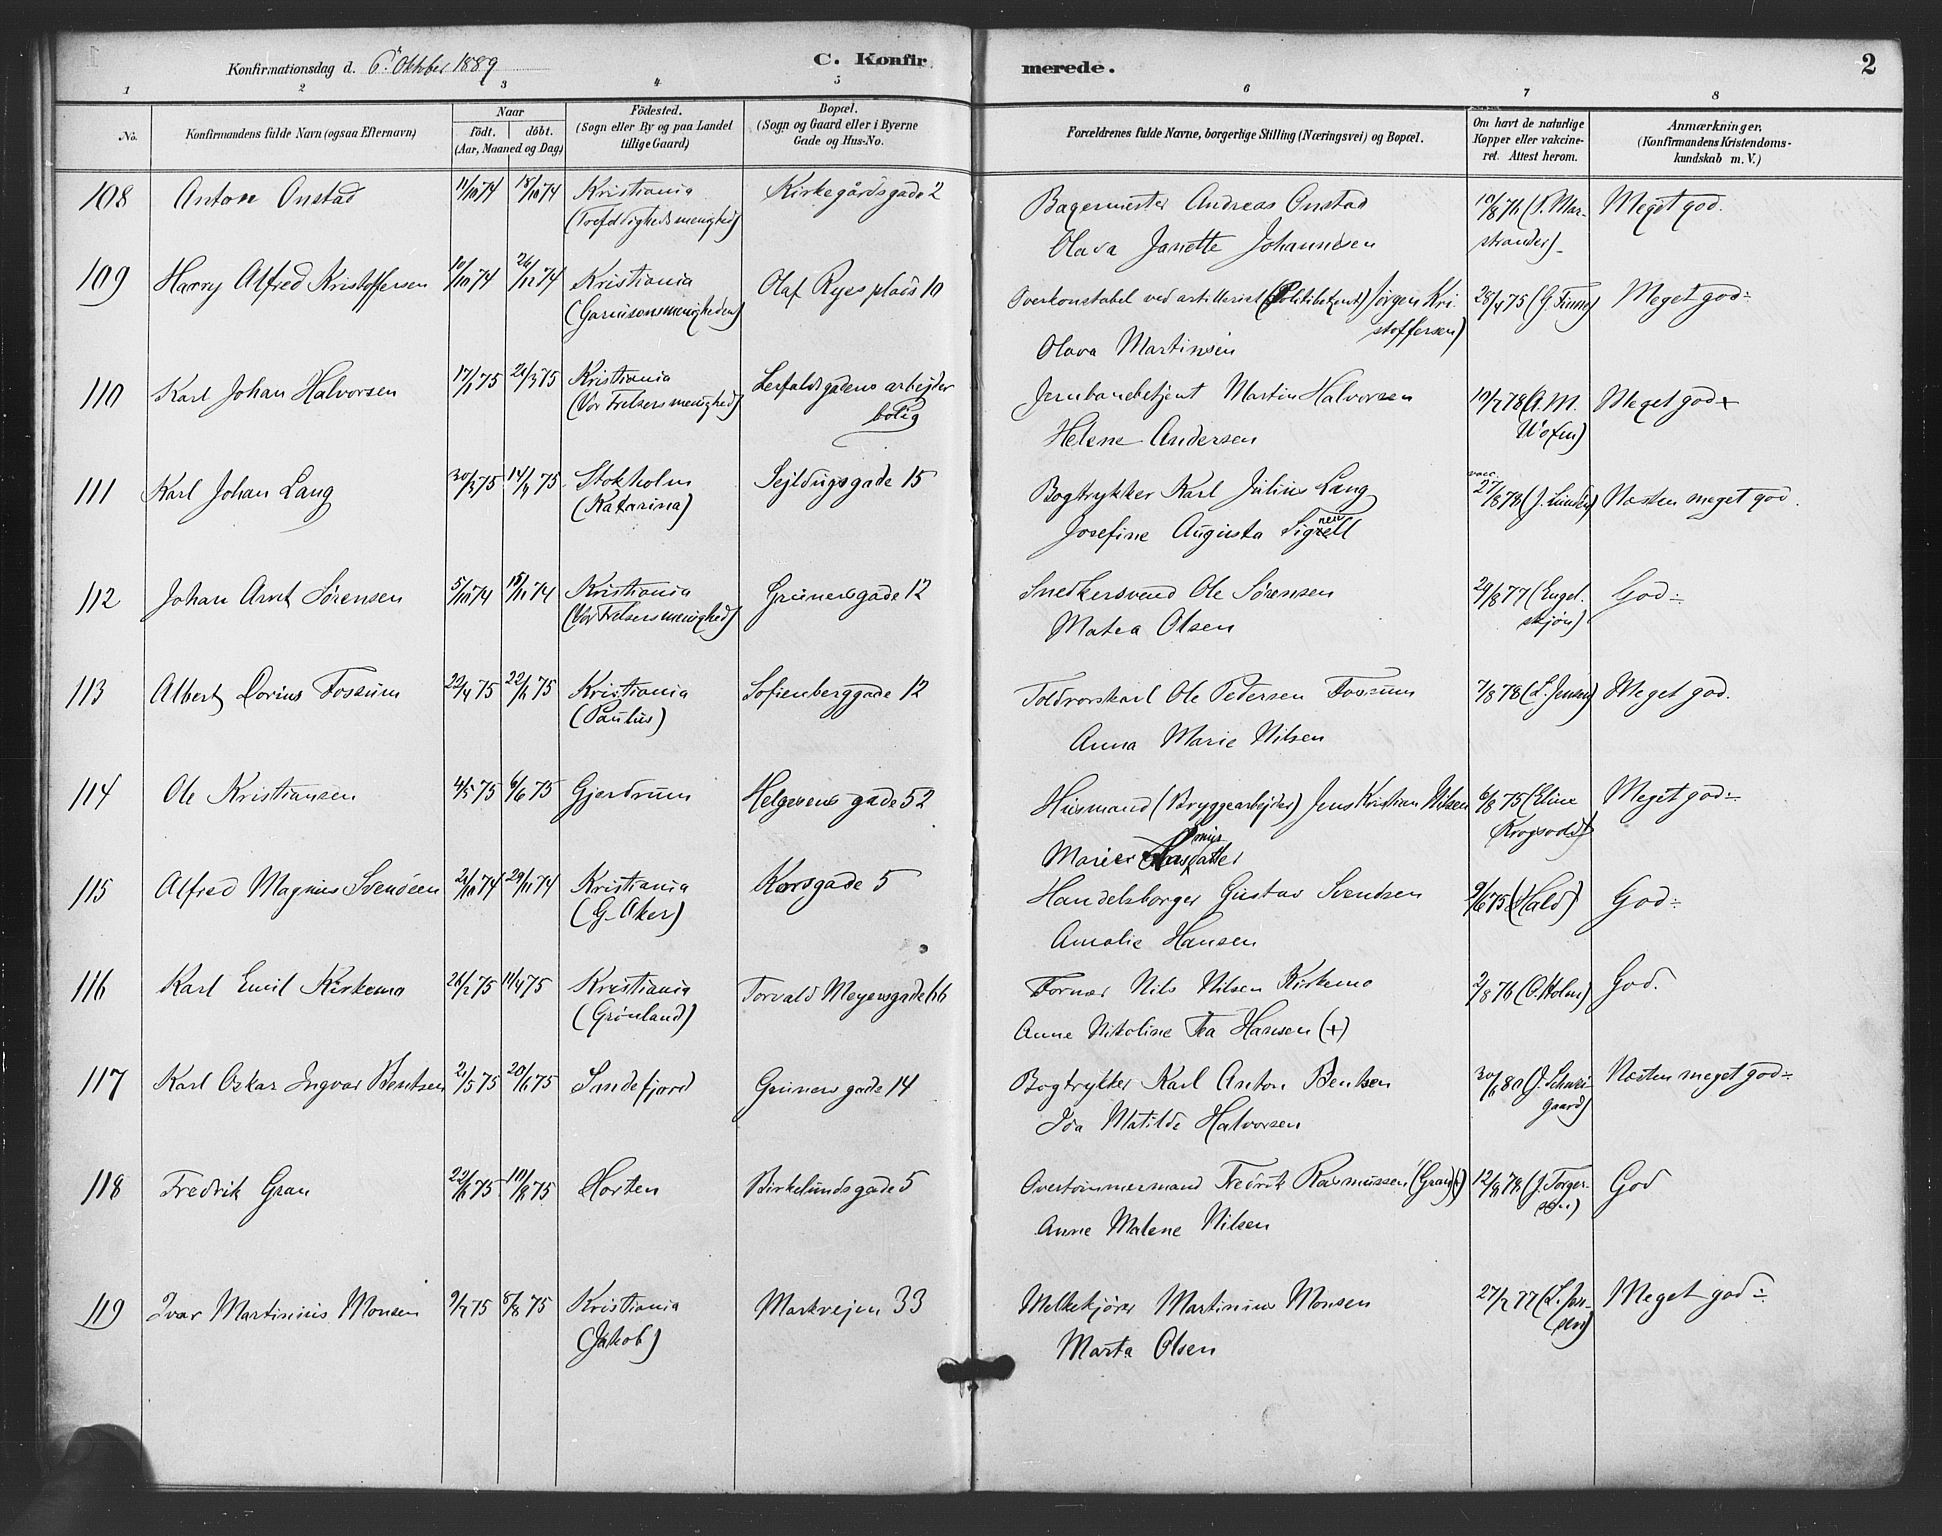 Konfirmationsdag d. 6. Oktober 1889 C. Konfir merede. 2
1 2 3 4 5 6 7 8
No.
Konfirmandens fulde Navn (ogsaa Efternavn)
Naar
født. døbt.
(Aar, Maaned og Dag)
Fødested.
(Sogn eller By og paa Landet
tillige Gaard)
Bopæl.
(Sogn og Gaard eller i Byerne
Gade og Hus-No.
Forældrenes fulde Navne, borgerlige Stilling (Næringsvei) og Bopæl.
Om havt de naturlige
Kopper eller vakcine-
ret. Attest herom.
Anmærkninger.
(Konfirmandens Kristendoms-
kundskab m. V.)
108 Anton Onstad 11/10 74 18/10 74 Kristiania Kirkegårdsgade 2 Bagermester Andreas Onstad 10/8 76 (P. Mar- Meget god.
(Trefoldighedsmenighed) Olava Janette Johannesen strander)
109 Harry Alfred Kristoffersen 10/10 74 26/12 74 Kristiania Olaf Ryes plads 10 Overkonstabel ved artilleriet (Politibetjent) Jørgen Kri- 28/4 75 Meget god÷
(Garnisonsmenigheden) stoffersen)
Olava Martinsen
110 Karl Johan Halvorsen 17/1 75 21/3 75 Kristiania Lerfaldsgadens arbejder Jernbanebetjent Martin Halvorsen 10/7 78 (A. M. Meget god+
(Vor Frelsers menighed) bolig Helene Andersen
111 Karl Johan Lang 30/3 75 14/4 75 Stokholm Sejldugsgade 15 Bogtrykker Karl Julius Lang vacc. 27/8 78 (J. Lunde) Næsten meget god.
(Katarina) Josefine Augusta
112 Johan Arnt Sørensen 5/10 74 15/11 74 Kristiania Grünersgade 12 Snedkersvend Ole Sørensen 29/8 77 (Engel- God÷
(Vor Frelsers menighed) Matea Olsen skjøn)
113 Albert Lorius Fossum 22/4 75 22/8 75 Kristiania Sofienberggade 12 Toldvorskarl Ole Petersen Fossum 7/8 78 (L. Jensen) Meget god.
(Paulus) Anna Marie Nilsen
114 Ole Kristiansen 4/5 75 6/6 75 Gjerdrum Helgesens gade 52 Husmand (Bryggearbejder) Jens Kristian Nilsen 6/8 75 (Eline Meget god÷
Krogsvold)
115 Alfred Magnus Svendsen 21/10 74 29/11 74 Kristiania Korsgade 5 Handelsborger Gustav Svendsen 9/6 75 (Hald) God÷
(G. Aker) Amalie Hansen
116 Karl Emil Kirkemo 26/2 75 11/4 75 Kristiania Torvald Meyersgade 66 Fornær Nils Nilsen Kirkemo 2/8 76 (O. Holm) God.
(Grønland) Anne Nikoline Fea Hansen (+)
117 Karl Oskar Ingvar Bentsen 21/5 75 20/6 75 Sandefjord Grünersgade 14 Bogtrykker Karl Anton Bentsen 30/6 80 (J. Schwei- Næsten meget god÷
Ida Matilde Halvorsen gaard)
118 Fredrik Gran 22/6 75 10/8 75 Horten Birkelundsgade 5 Overtømmermand Fredrik Rasmussen (Gran)(+) 12/8 78 (J. Torger- God
Anne Malene Nilsen sen)
119 Ivar Martinius Monsen 9/7 75 8/8 75 Kristiania Markvejen 33 Melkekjører Martinius Monsen 27/7 77 Meget god÷
(Jakob) Marta Olsen